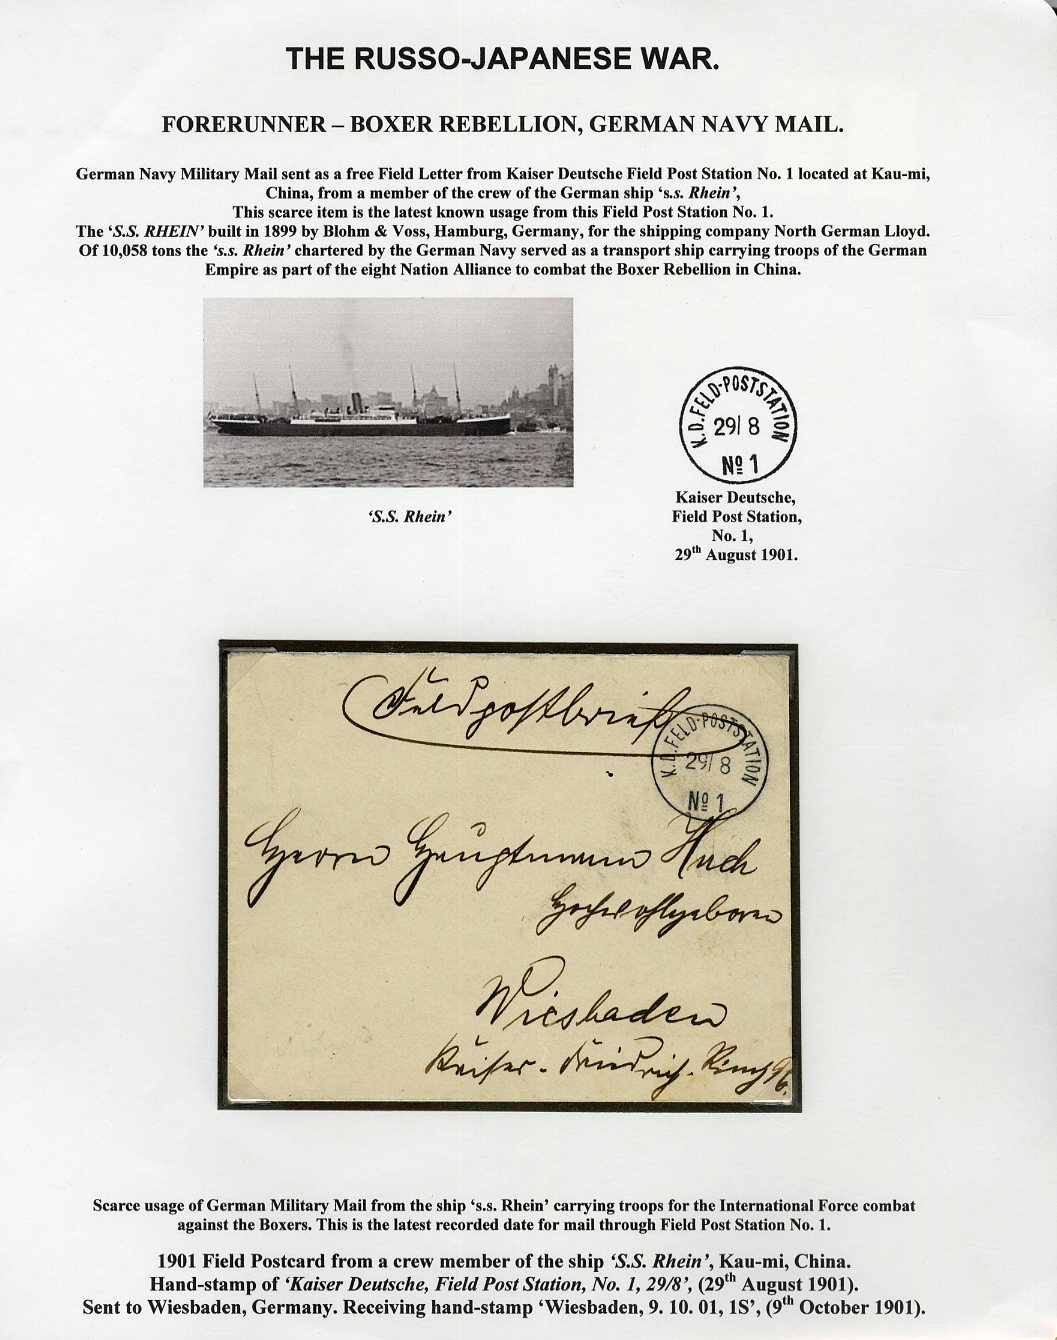 THE RUSSO-JAPANESE WAR.
FORERUNNER – BOXER REBELLION, GERMAN NAVY MAIL.
German Navy Military Mail sent as a free Field Letter from Kaiser Deutsche Field Post Station No. 1 located at Kau-mi,
China, from a member of the crew of the German ship ‘s.s. Rhein’,
This scarce item is the latest known usage from this Field Post Station No. 1.
The ‘S.S. RHEIN’ built in 1899 by Blohm & Voss, Hamburg, Germany, for the shipping company North German Lloyd.
Of 10,058 tons the ‘s.s. Rhein’ chartered by the German Navy served as a transport ship carrying troops of the German
Empire as part of the eight Nation Alliance to combat the Boxer Rebellion in China.
K.D. FELD-POSTSTATION
29/ 8
No 1
‘S.S. Rhein’
Kaiser Deutsche,
Field Post Station,
No. 1,
29th August 1901.
Feldpostbrief
K.D. FELD-POSTSTATION
29/ 8
No 1
Herrn Hauptmann Huch
Hochwohlgeboren
Wiesbaden
Kaiser-Friedrich-Ring 96.
Scarce usage of German Military Mail from the ship ‘s.s. Rhein’ carrying troops for the International Force combat
against the Boxers. This is the latest recorded date for mail through Field Post Station No. 1.
1901 Field Postcard from a crew member of the ship ‘S.S. Rhein’, Kau-mi, China.
Hand-stamp of ‘Kaiser Deutsche, Field Post Station, No. 1, 29/8’, (29th August 1901).
Sent to Wiesbaden, Germany. Receiving hand-stamp ‘Wiesbaden, 9. 10. 01, 1S’, (9th October 1901).